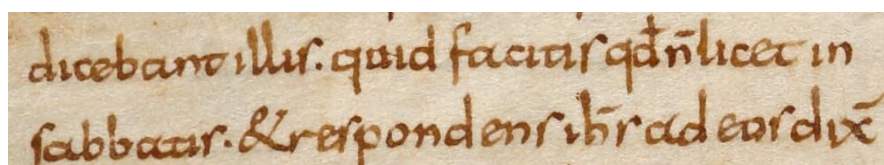 dicebant illis. quid facitis qd̄ n̄ licet in
sabbatis. & respondens ih̅s ad eos dix̅